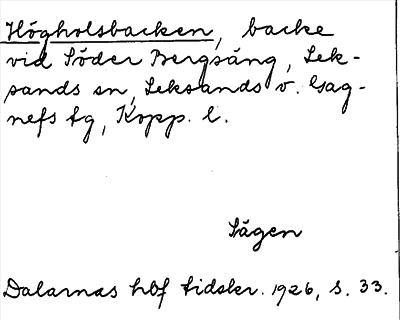 Högholsbacken, backe
vid Söder Bergsäng, Lek-
sands sn, Leksands o. Gag-
nefs tg, Kopp. l.
Sägen
Dalarnas hbf tidskr. 1926, s. 33.